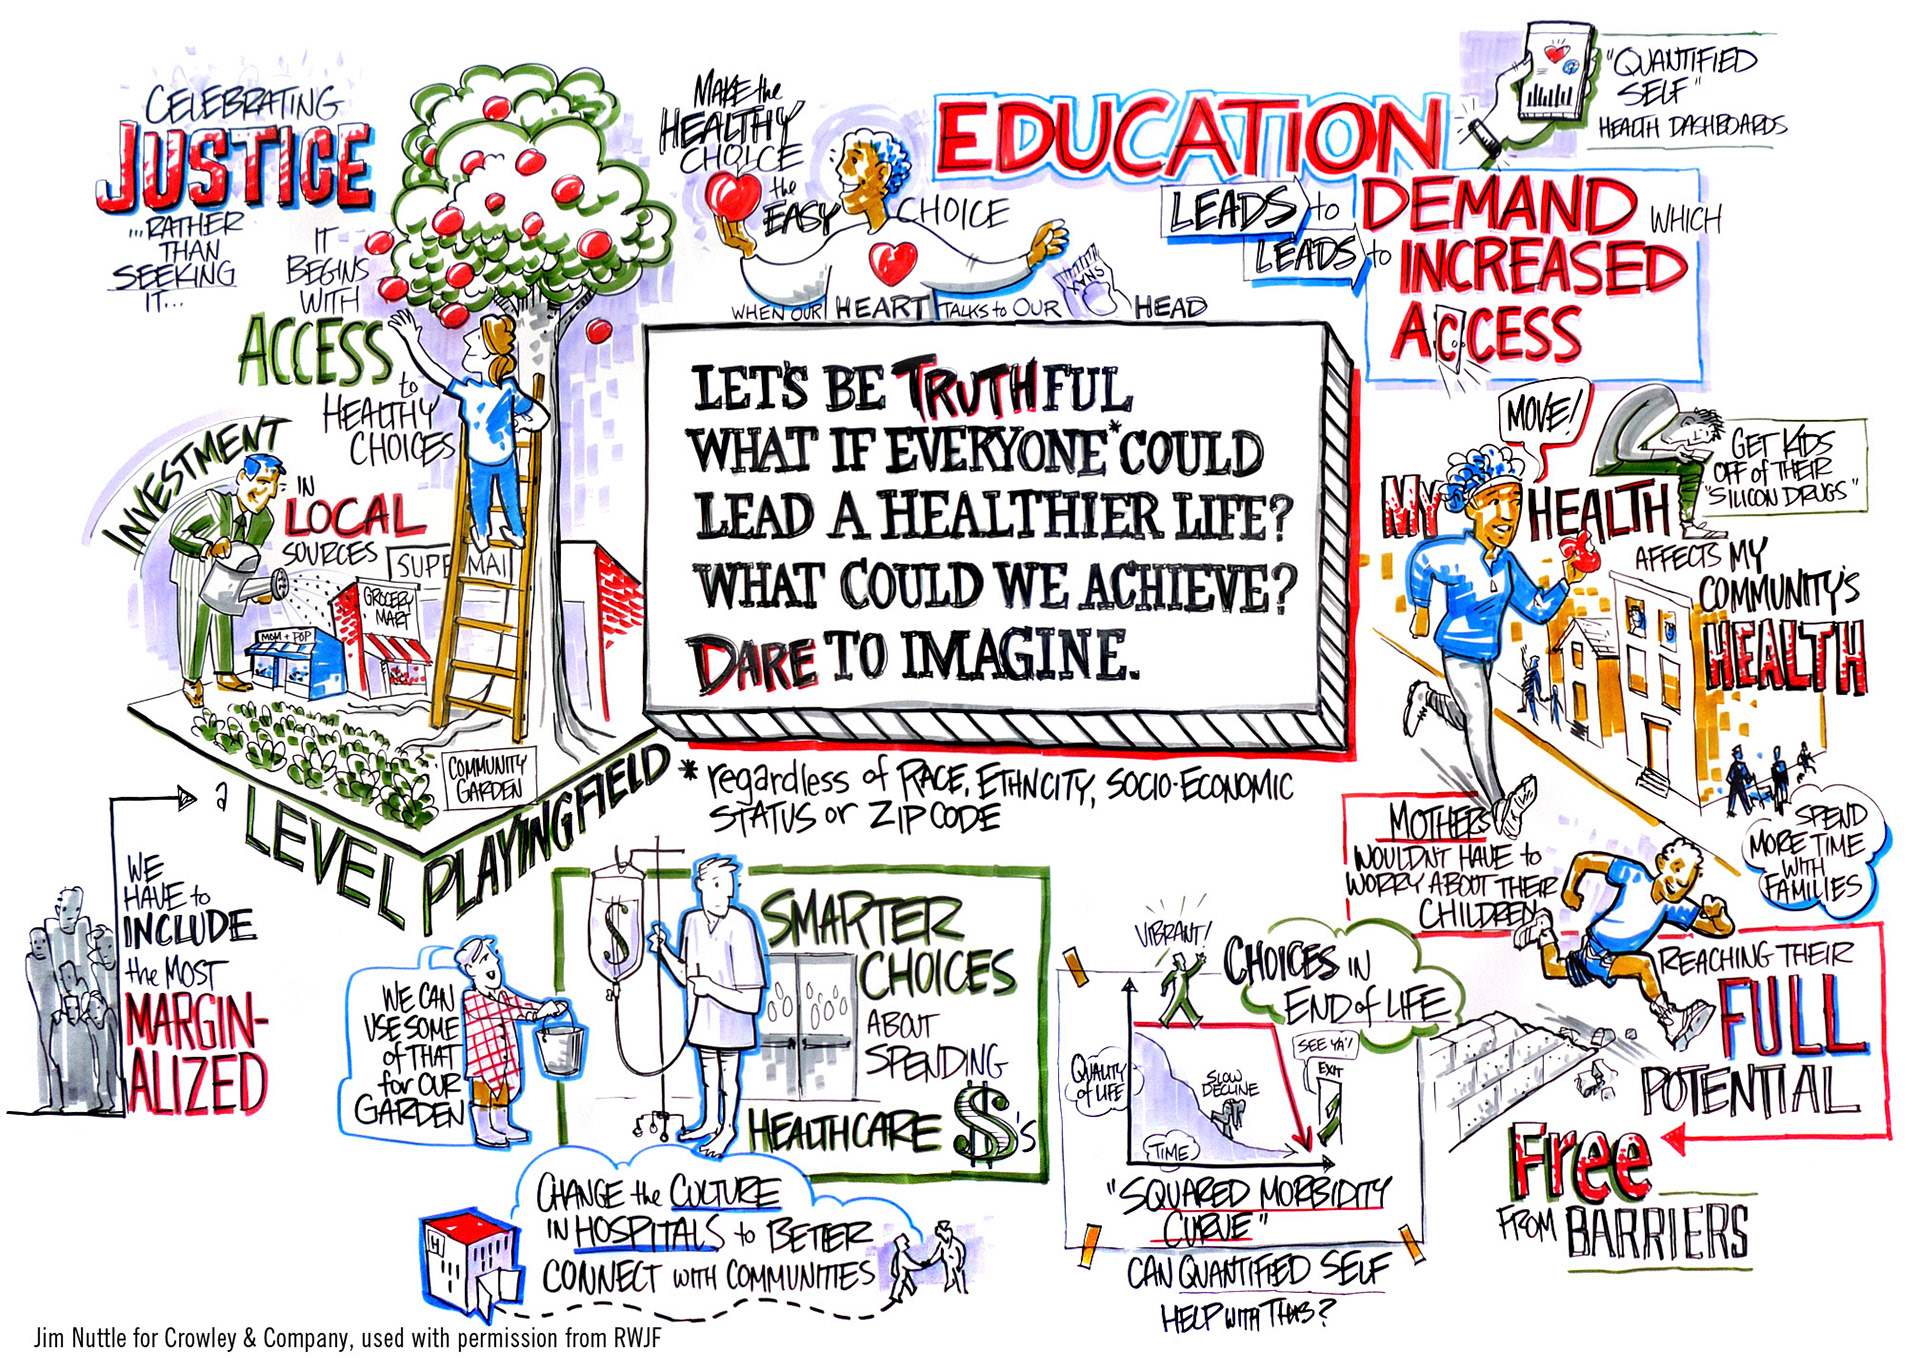 CELEBRATING
JUSTICE
...RATHER
THAN
SEEKING
IT...
IT
BEGINS
WITH
ACCESS
to
HEALTHY
CHOICES
INVESTMENT
IN
LOCAL
SOURCES
SUPE MAI
GROCERY
MART
MOM + POP
COMMUNITY
GARDEN
a
LEVEL PLAYINGFIELD
WE
HAVE to
INCLUDE
the MOST
MARGIN-
ALIZED
MAKE the
HEALTHY
CHOICE
the
EASY CHOICE
WHEN OUR HEART TALKS to OUR HEAD
EDUCATION
LEADS to DEMAND WHICH
LEADS to INCREASED
ACCESS
"QUANTIFIED
SELF"
HEALTH DASHBOARDS
LET'S BE TRUTHFUL
WHAT IF EVERYONE* COULD
LEAD A HEALTHIER LIFE?
WHAT COULD WE ACHIEVE?
DARE TO IMAGINE.
* regardless of RACE, ETHNCITY, SOCIO-ECONOMIC
STATUS or ZIP CODE
MOVE!
GET KIDS
OFF of THEIR
"SILICON DRUGS"
MY HEALTH
AFFECTS MY
COMMUNITY'S
HEALTH
MOTHERS
WOULDNT HAVE to
WORRY ABOUT THEIR
CHILDREN
SPEND
MORE TIME
WITH
FAMILIES
REACHING THEIR
FULL
POTENTIAL
Free
FROM BARRIERS
WE CAN
USE SOME
of THAT
for OUR
GARDEN
$
SMARTER
CHOICES
ABOUT
SPENDING
HEALTHCARE $'s
CHANGE the CULTURE
IN HOSPITALS to BETTER
CONNECT WITH COMMUNITIES
H
VIBRANT!
CHOICES IN
END of LIFE
QUALITY
of LIFE
SLOW
DECLINE
SEE YA'!
EXIT
TIME
"SQUARED MORBIDITY
CURVE"
CAN QUANTIFIED SELF
HELP WITH THIS?
Jim Nuttle for Crowley & Company, used with permission from RWJF